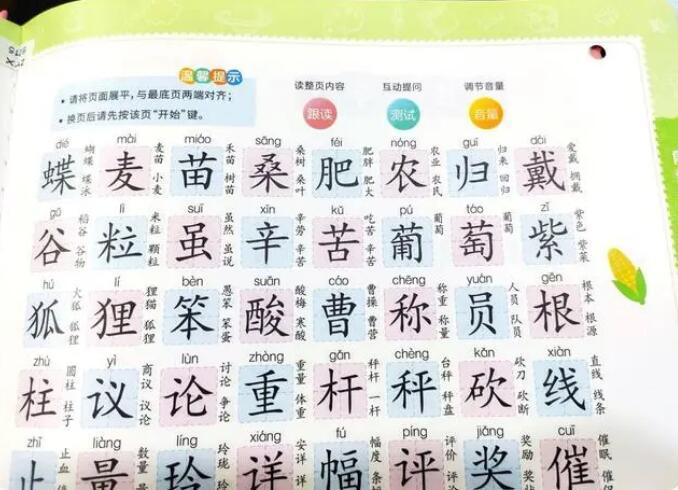 温馨提示
• 请将页面展平,与最底页两端对齐;
• 换页后请先按该页“开始”键。
读整页内容 互动提问 调节音量
跟读 测试 音量
dié mài miáo sāng féi nóng guī dài
蝶 蝴蝶 蝶泳 麦 麦苗 小麦 苗 禾苗 树苗 桑 桑树 桑叶 肥 肥胖 肥大 农 农业 农民 归 归来 回归 戴 爱戴 拥戴
gǔ lì suī xīn kǔ pú táo zǐ
谷 稻谷 谷物 粒 米粒 颗粒 虽 虽然 虽说 辛 辛劳 辛苦 苦 吃苦 辛苦 葡 葡萄 萄 葡萄 紫 紫色 紫菜
hú lí bèn suān cáo chēng yuán gēn
狐 火狐 狐狸 狸 狸猫 狐狸 笨 愚笨 笨蛋 酸 酸梅 寒酸 曹 曹操 曹营 称 称重 称量 员 人员 队员 根 根本 根源
zhù yì lùn zhòng gǎn chèng kǎn xiàn
柱 圆柱 柱子 议 商议 议论 论 讨论 争论 重 重量 体重 杆 秤杆 一杆 秤 台秤 秤盘 砍 砍刀 砍断 线 直线 线条
zhǐ liàng líng xiáng fú píng jiǎng cuī
止 止血 量 数量 玲 玲珑 详 安详 幅 幅度 评 评价 奖 奖励 催 催眠